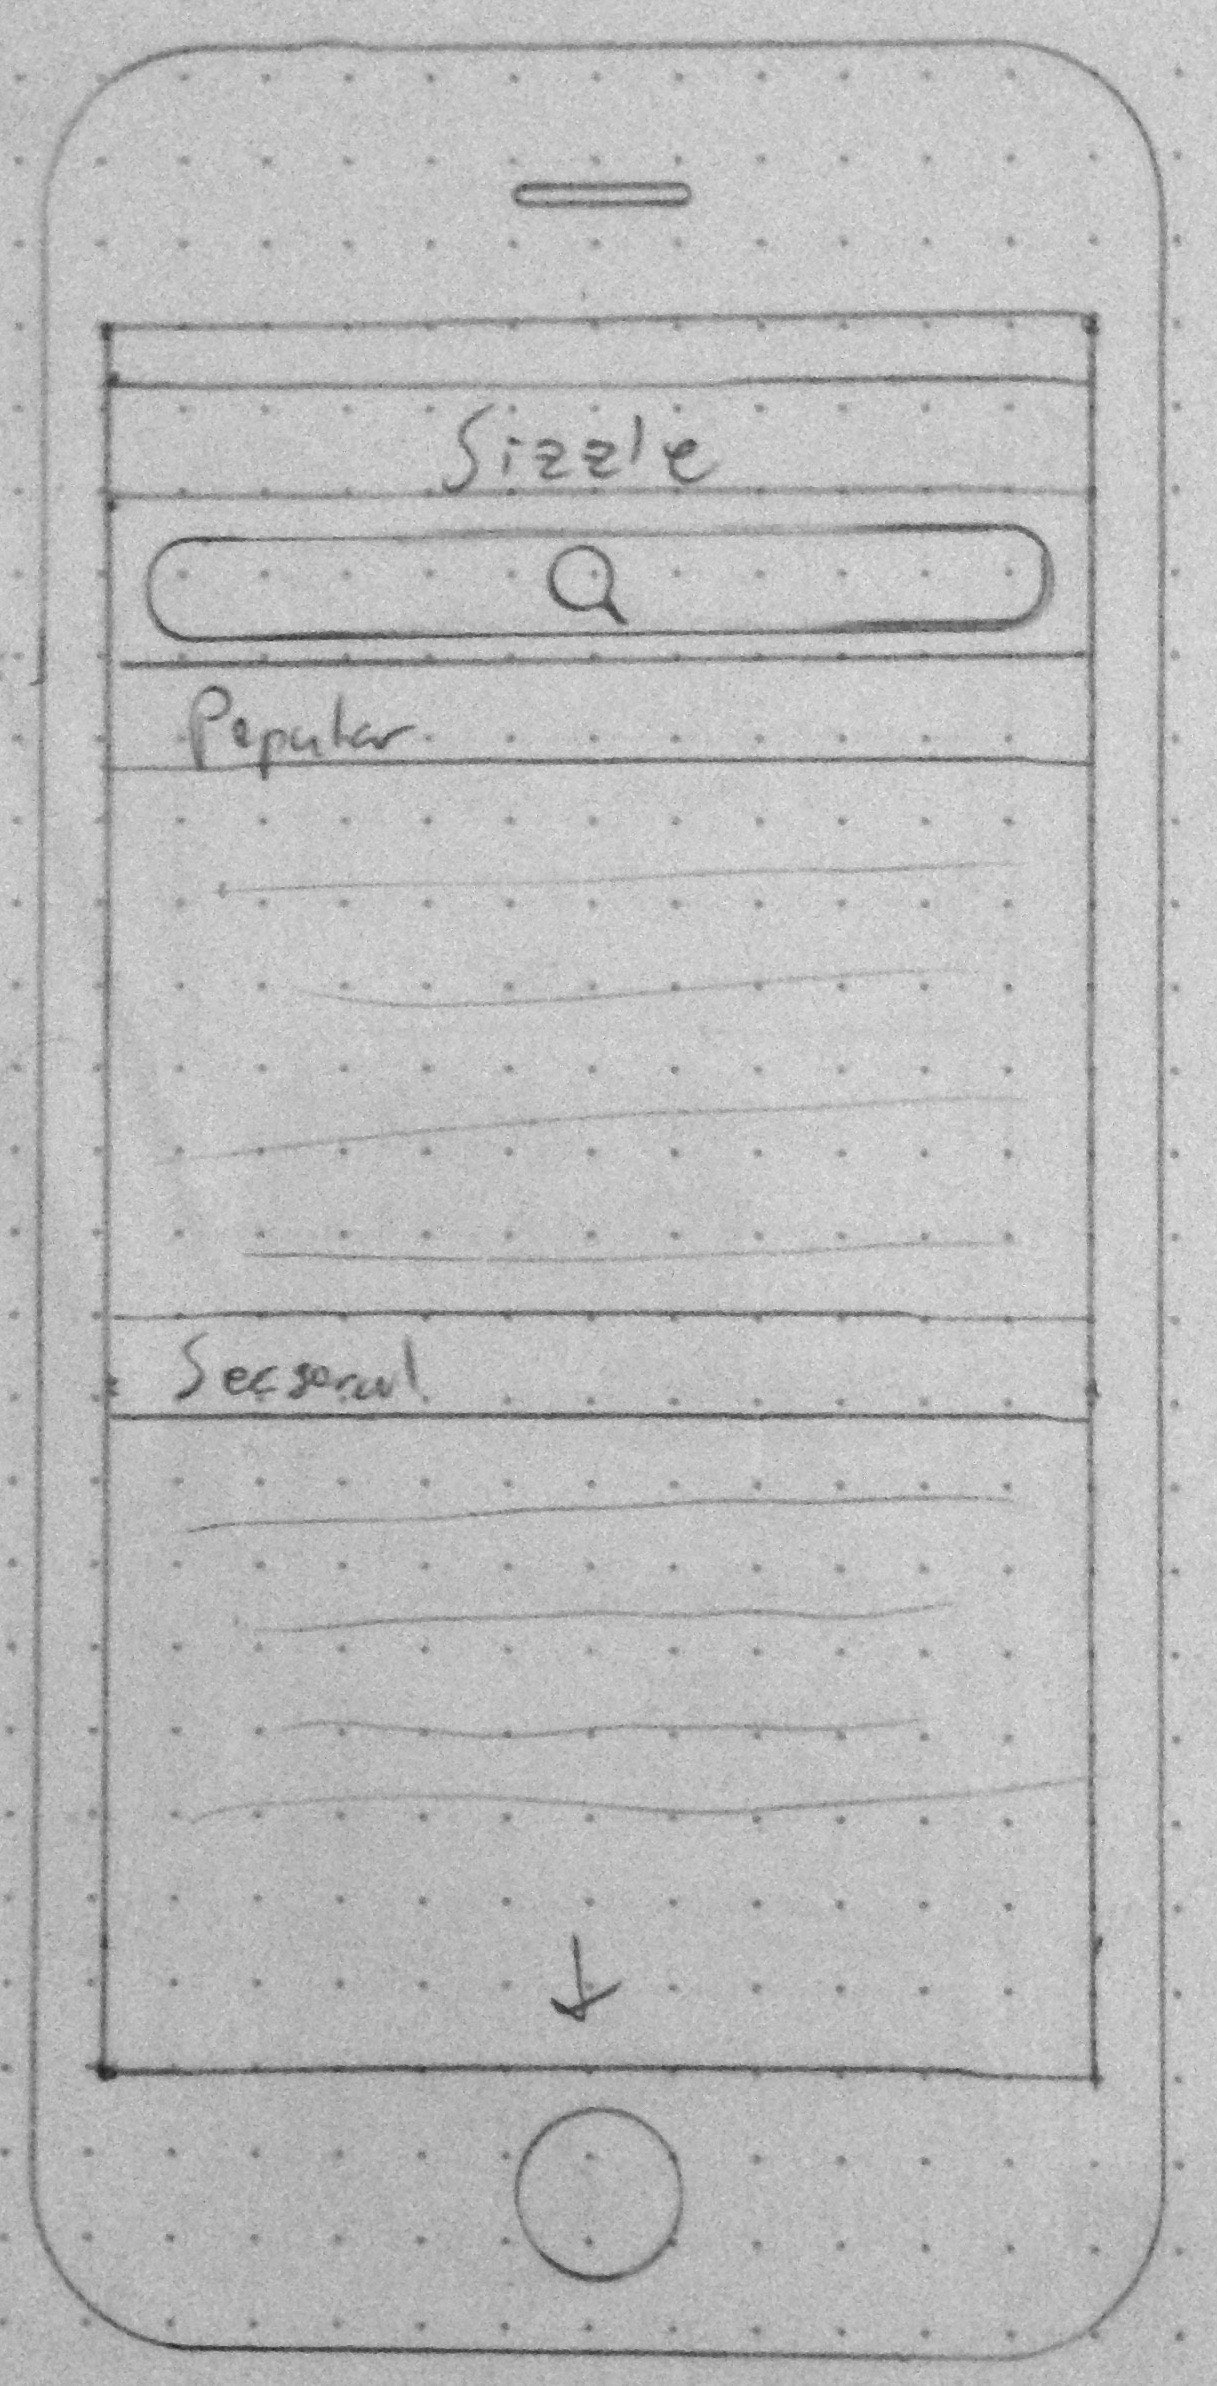 Sizzle
Popular
Seasonal